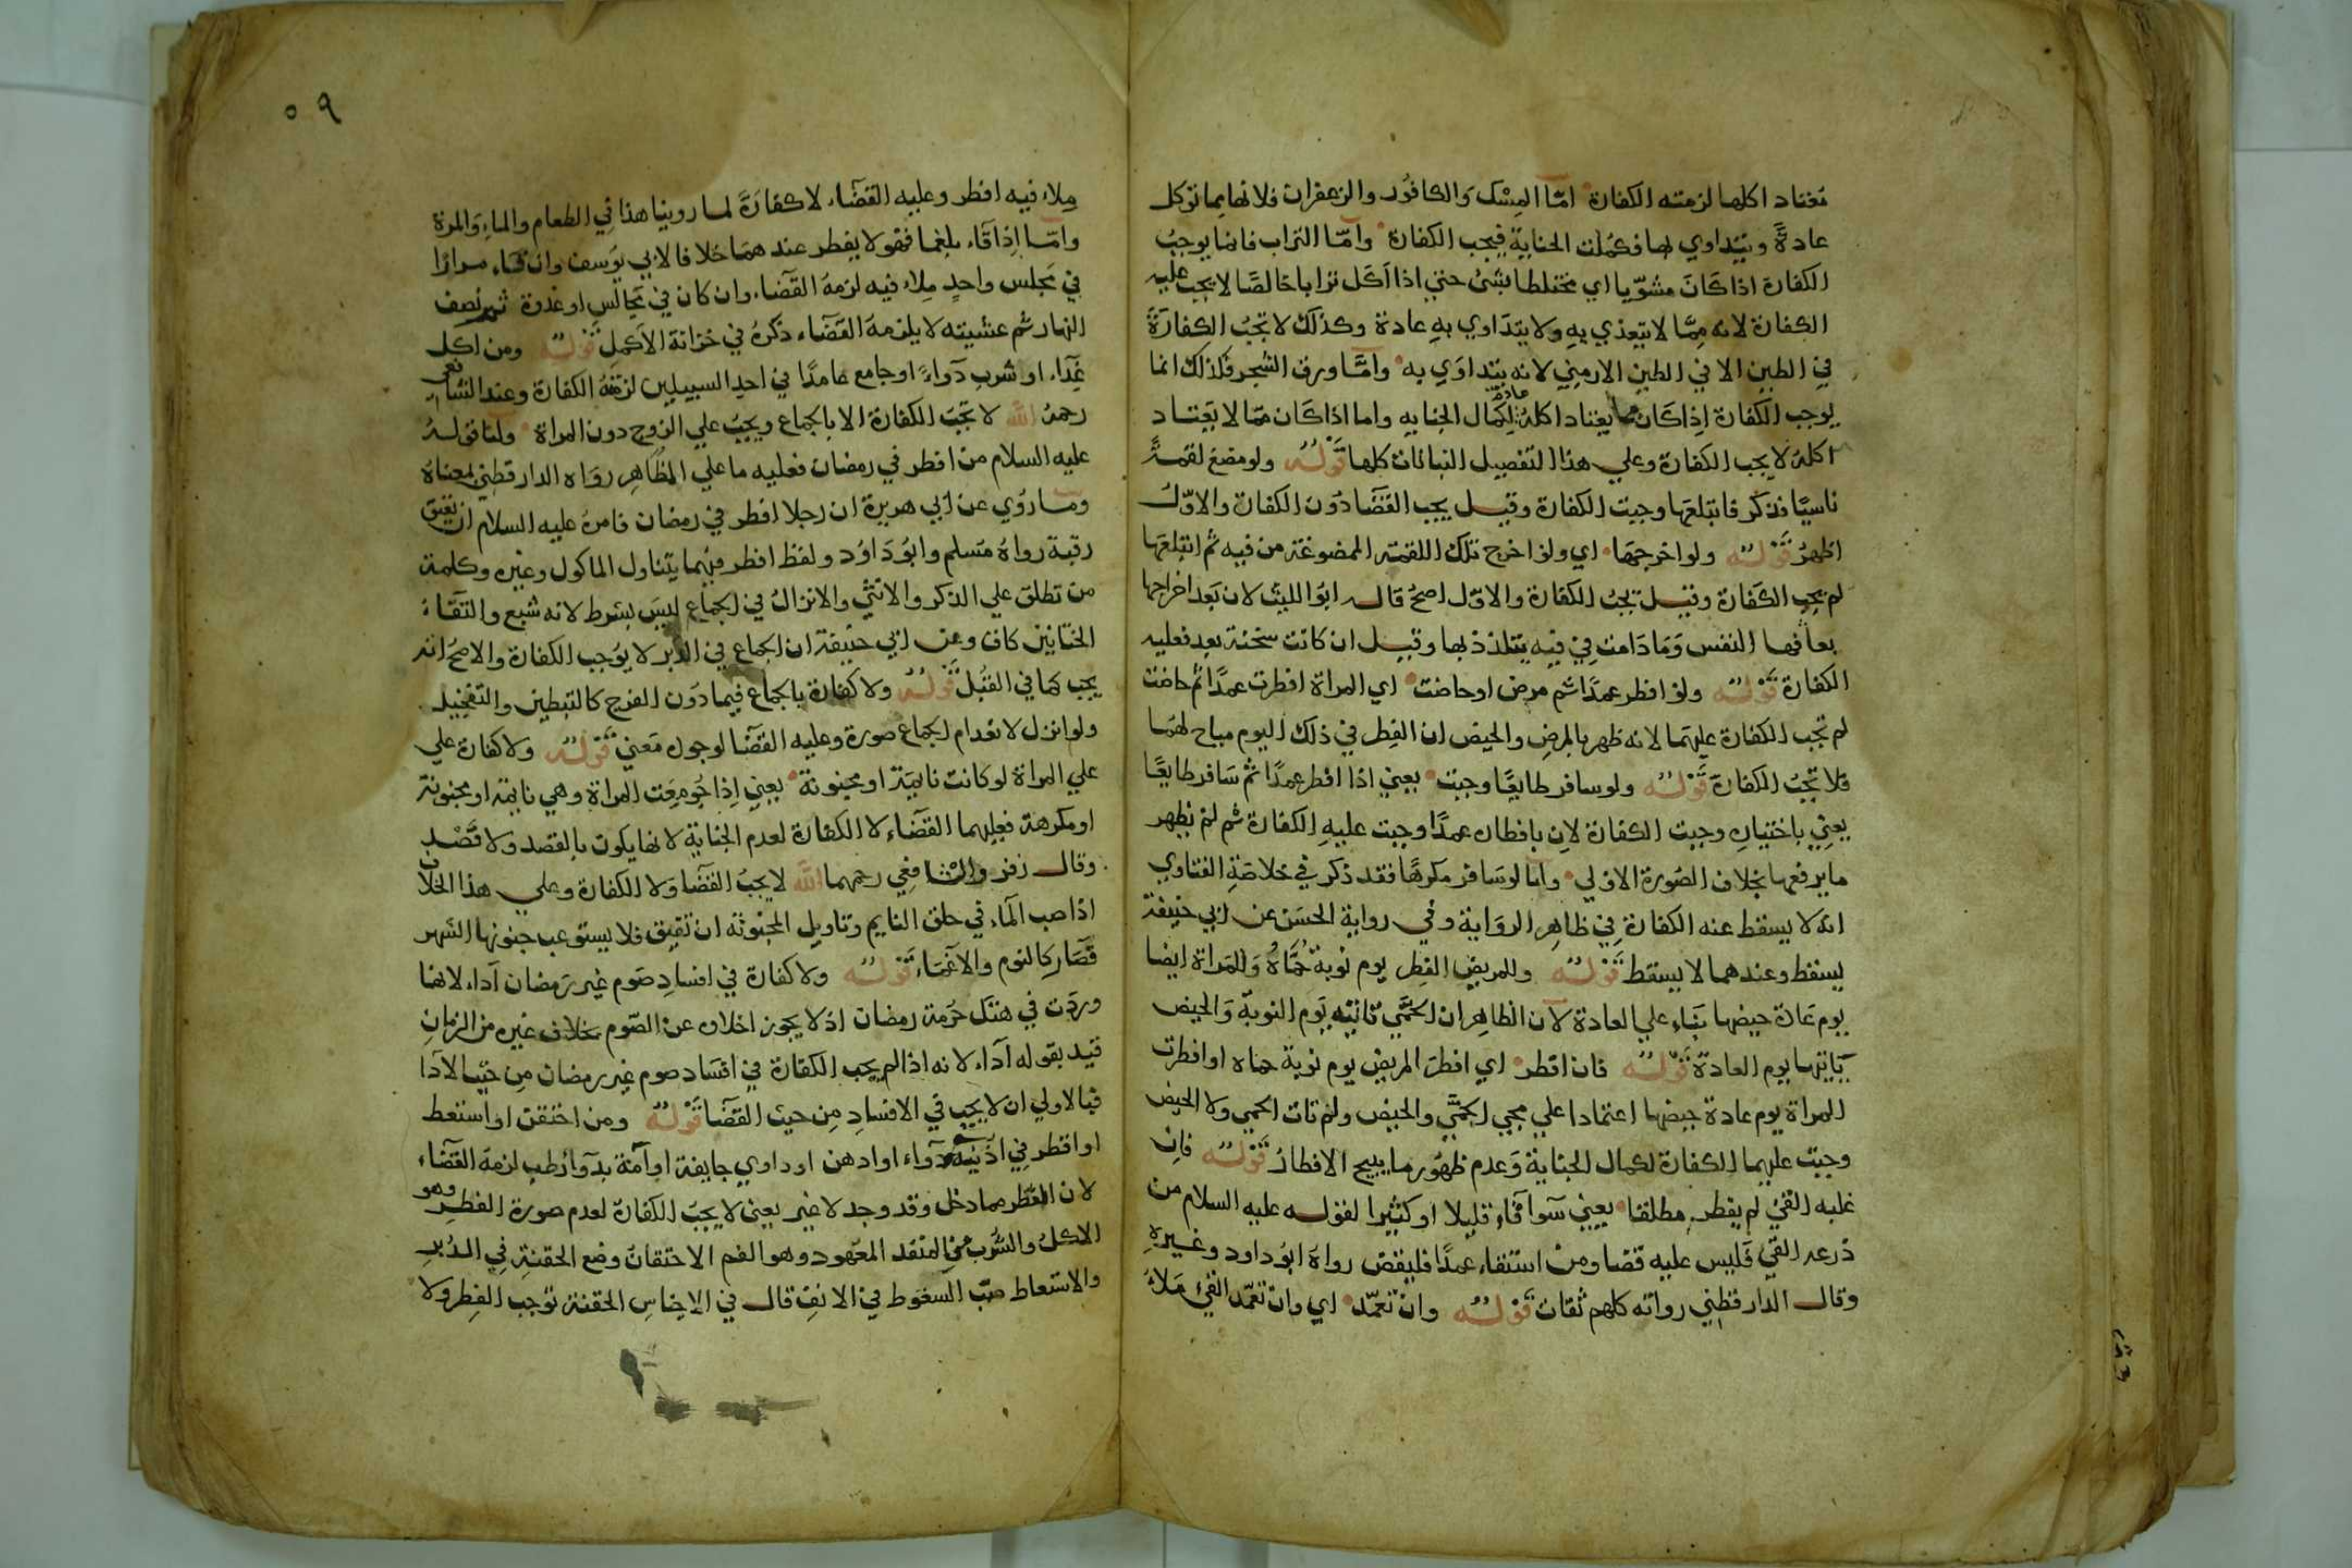 معتاد اكلها لزمته الكفارة اما المسك والكافور والزعفران فلانها مما توكل
عادة ويتداوي بها فكملت الجناية فيجب الكفارة واما التراب فانما يوجب
الكفارة اذا كان مشويا اي مختلطا بشئ حتي اذا اكل ترابا خالصا لا يجب عليه
الكفارة لانه مما لا يتغذي به ولا يتداوي به عادة وكذلك لا تجب الكفارة
في الطين الا في الطين الارمني لانه يتداوي به واما ورق الشجر فكذلك انما
يوجب الكفارة اذا كان مما يعتاد اكله عادة لكمال الجنايه واما اذا كان مما لا يعتاد
اكله لا يجب الكفارة وعلي هذا التفصيل النباتات كلها قوله ولو مضغ لقمة
ناسيا فذكر فابتلعها وجبت الكفارة وقيل يجب القضا دون الكفارة والاول
اظهر قوله ولو اخرجها اي ولو اخرج تلك اللقمة الممضوغة من فيه ثم ابتلعها
لم يجب الكفارة وقيل تجب الكفارة والاول اصح قال ابو الليث لان بعد اخراجها
يعافها النفس وما دامت في فيه يتلذذ بها وقيل ان كانت سخنة بعد فعليه
الكفارة قوله ولو افطر عمدا ثم مرض او حاضت اي المراة افطرت عمدا ثم حاضت
لم تجب الكفارة عليهما لانه ظهر بالمرض والحيض ان الفطر في ذلك اليوم مباح لهما
فلا تجب الكفارة قوله ولو سافر طايعا وجبت يعني اذا افطر عمدا ثم سافر طايعا
يعني باختياره وجبت الكفارة لان بافطاره عمدا وجبت عليه الكفارة ثم لم يظهر
ما يرفعها بخلاف الصورة الاولي واما لو سافر مكرها فقد ذكر في خلاصة الفتاوي
انه لا يسقط عنه الكفارة في ظاهر الرواية وفي رواية الحسن عن ابي حنيفة
يسقط وعندهما لا يسقط قوله وللمريض الفطر يوم نوبة حماه وللمراة ايضا
يوم عادة حيضها بناء علي العادة لان الظاهر ان الحمي تاتيه يوم النوبة والحيض
ياتيها يوم العادة قوله فان افطر اي افطر المريض يوم نوبة حماه او افطرت
المراة يوم عادة حيضها اعتمادا علي مجي الحمي والحيض ولم تات الحمي ولا الحيض
وجبت عليهما الكفارة لكمال الجناية وعدم ظهور ما يبيح الافطار قوله فان
غلبه القئ لم يفطر مطلقا يعني سوا قاء قليلا او كثيرا لقوله عليه السلام من
ذرعه القئ فليس عليه قضا ومن استقاء عمدا فليقض رواه ابو داود وغيره
وقال الدارقطني رواته كلهم ثقات قوله وان تعمد اي وان تعمد القئ ملاء
٥٩
ملاء فيه افطر وعليه القضاء لا كفارة لما روينا هذا في الطعام والماء والمرة
واما اذا قاء بلغما فهو لا يفطر عندهما خلافا لابي يوسف وان قاء مرارا
في مجلس واحد ملاء فيه لزمه القضاء وان كان في مجالس او غدوة ثم نصف
النهار ثم عشيته لا يلزمه القضاء ذكره في خزانة الاكمل قوله ومن اكل
غذاء او شرب دواء او جامع عامدا في احد السبيلين لزمته الكفارة وعند الشافعي
رحمه الله لا تجب الكفارة الا بالجماع ويجب علي الزوج دون المراة ولنا قوله
عليه السلام من افطر في رمضان فعليه ما علي المظاهر رواه الدارقطني بمعناه
وما روي عن ابي هريرة ان رجلا افطر في رمضان فامره عليه السلام ان يعتق
رقبة رواه مسلم وابو داود ولفظ افطر فيهما يتناول الماكول وغيره وكلمة
من تطلق علي الذكر والانثي والانزال في الجماع ليس بشرط لانه شبع والتقاء
الختانين كاف وعن ابي حنيفة ان الجماع في الدبر لا يوجب الكفارة والاصح انه
يجب كما في القبل قوله ولا كفارة بالجماع فيما دون الفرج كالتبطين والتفخيذ
ولو انزل لانعدام الجماع صورة وعليه القضا لوجوده معني قوله ولا كفارة علي
علي المراة لو كانت نايمة او مجنونة يعني اذا جومعت المراة وهي نايمة او مجنونة
او مكرهة فعليهما القضاء لا الكفارة لعدم الجناية لانها يكون بالقصد ولا قصد
وقال زفر والشافعي رحمهما الله لا يجب القضا ولا الكفارة وعلي هذا الخلاف
اذا صب الماء في حلق النايم وتاويل المجنونة ان تفيق فلا يستوعب جنونها الشهر
فصار كالنوم والاغماء قوله ولا كفارة في افساد صوم غير رمضان آداء لانها
وردت في هتك حرمة رمضان اذ لا يجوز اخلاه عن الصوم بخلاف غيره من الزمان
قيد بقوله آداء لانه اذا لم يجب الكفارة في افساد صوم غير رمضان من حيث الآدا
فبالاولي ان لا يجب في الافساد من حيث القضا قوله ومن احتقن او استعط
او اقطر في اذنيه دواء او ادهن او داوي جايفة او آمة بدوا رطب لزمه القضاء
لان الفطر مما دخل وقد وجد لا غير يعني لا يجب الكفارة لعدم صورة الفطر وهو
الاكل والشرب من المنفذ المعهود وهو الفم الاحتقان وضع الحقنة في الدبر
والاستعاط صب السعوط في الانف قال في الاجناس الحقنة توجب الفطر ولا